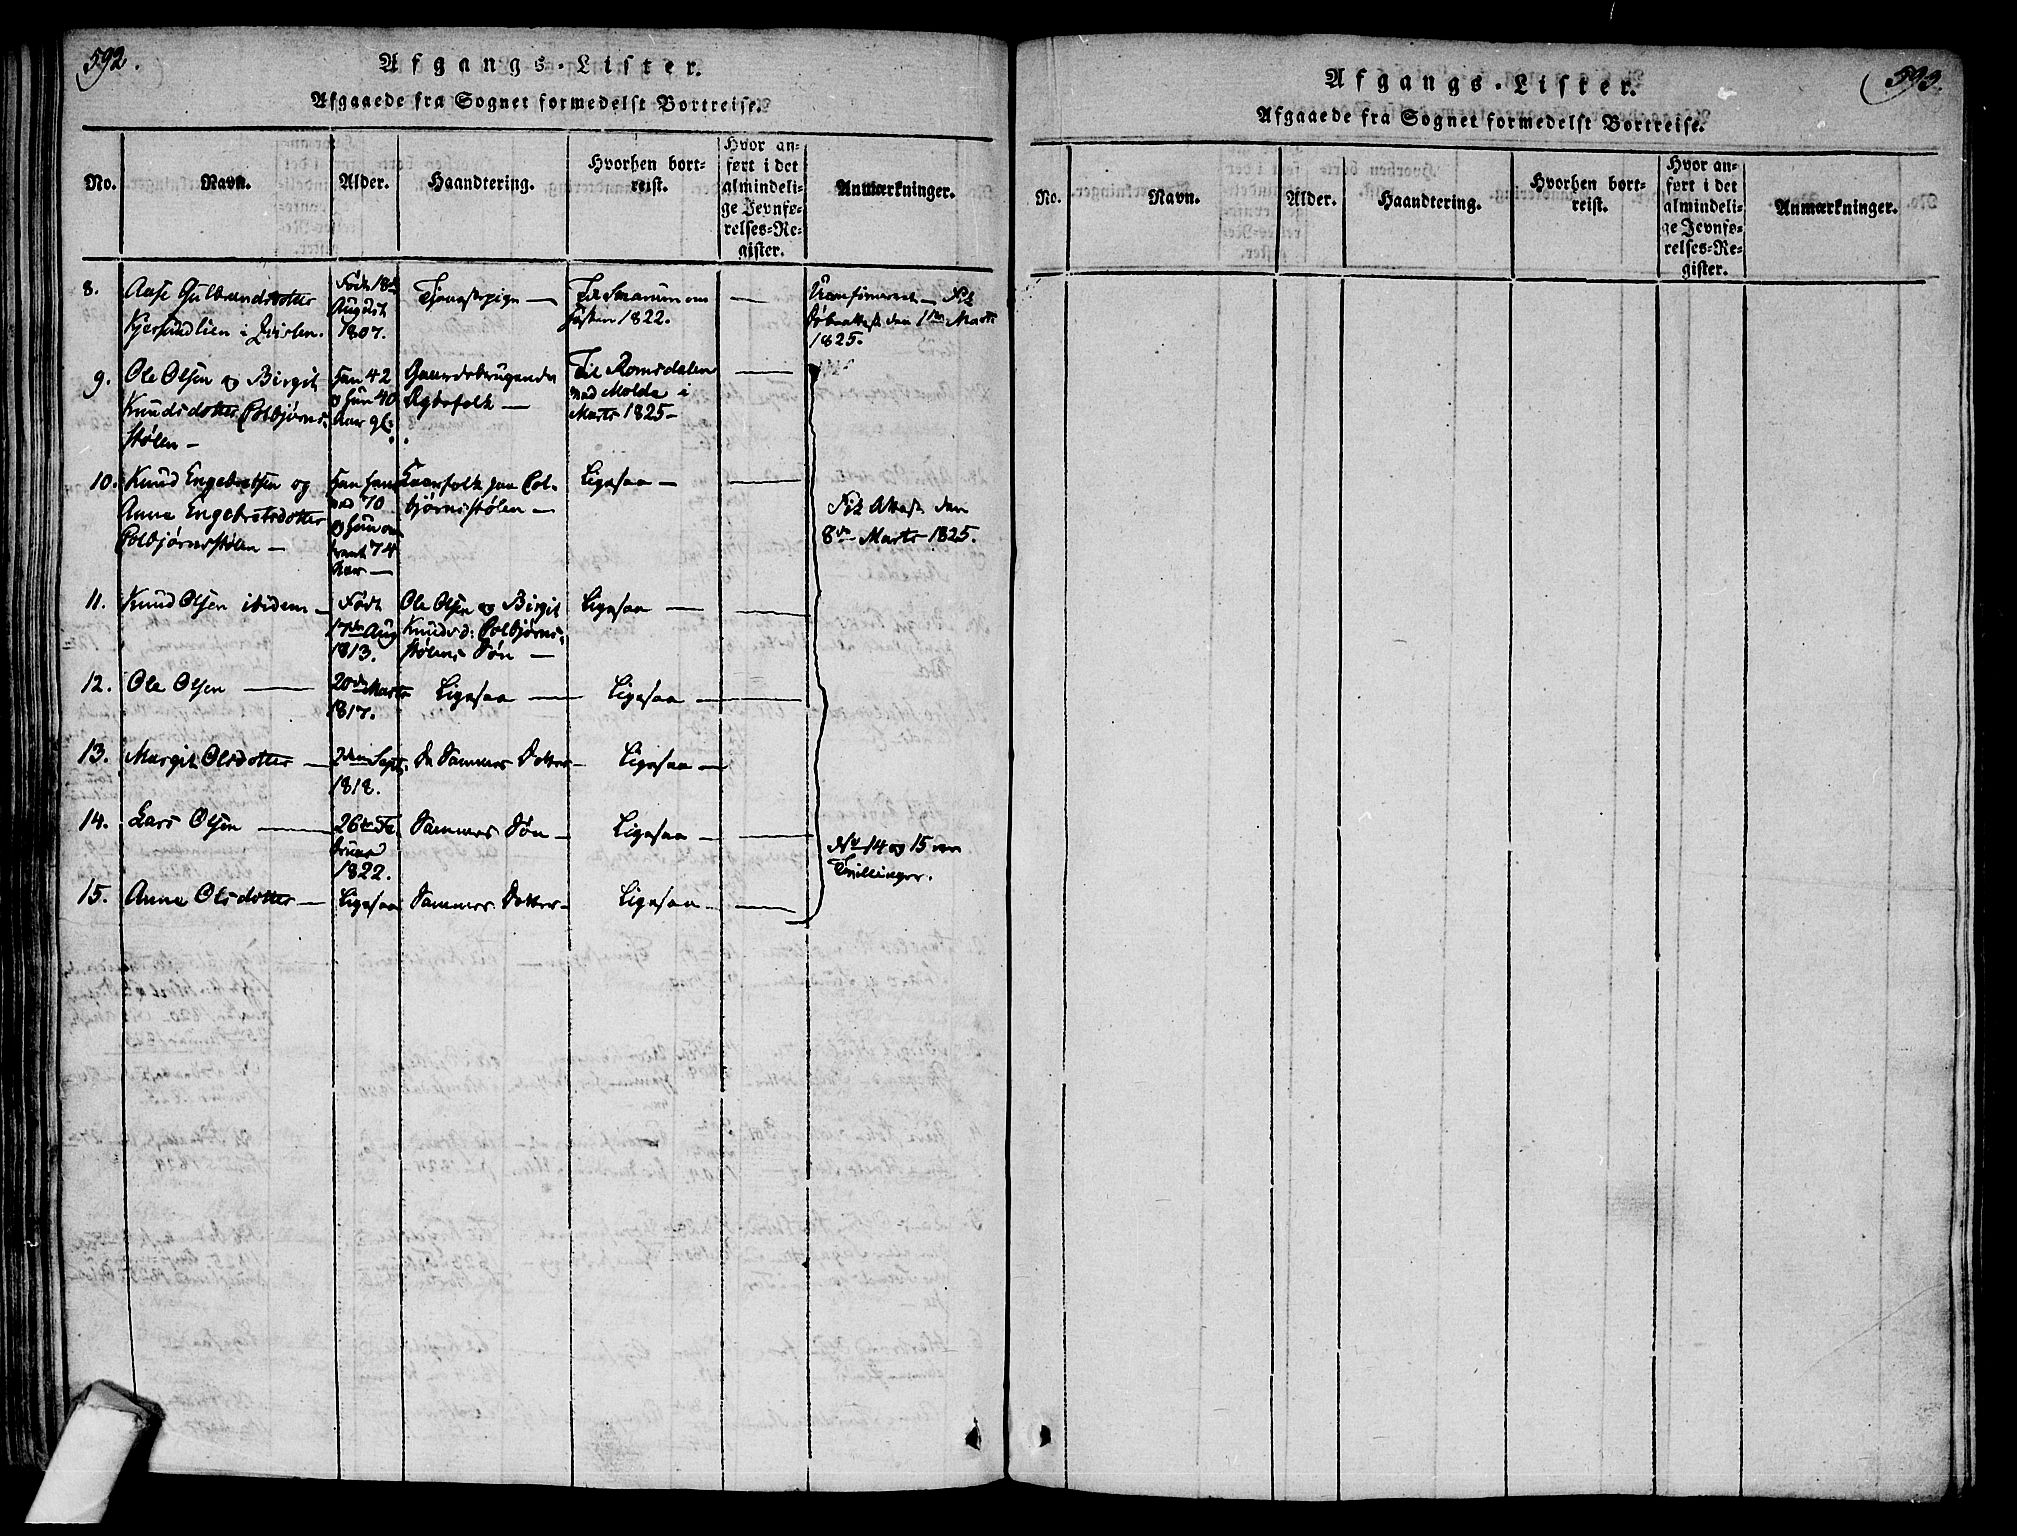 592.
Afgangs-Lister.
Afgaaede fra Sognet formedelst Bortreise.
No.
Navn.
Alder.
Haandtering.
Hvorhen bort-
reist.
Hvor an-
ført i det
almindeli-
ge Jevnfø-
relses-Re-
gister.
Anmærkninger.
8.
Aase Gulbrandsdotter
i
Født 18de
August
1807.
Tjenestepige —
Til
1822.
—
Uconfirmeret — Fik
Døbeattest den 1ste Marts
1825.
9.
Ole Olsen og Birgit
Knudsdotter Colbjørns-
stølen —
Han 42
og Hun 40
Aar gl:
Gaardebrugende
Ægtefolk —
Til Romsdalen
ved Molde i
Marts 1825 —
—
10.
Knud Engebretsen og
Anne Engebretsdotter
Colbjørnsstølen —
Han
70
og Hun om-
trent 74
Aar —
Kaarfolk paa Col-
bjørnsstølen —
Ligesaa —
—
Fik Attest den
8de Marts 1825.
11.
Knud Olsen ibidem —
Født
17de Aug
1813.
Ole Olsen og Birgit
Knudsd: Colbjørns-
stølens Søn —
Ligesaa —
—
12.
Ole Olsen —
20de Marts
1817.
Ligesaa —
Ligesaa —
—
13.
Margit Olsdotter —
2den Sept.
1818.
De Sammes Dotter —
Ligesaa —
14.
Lars Olsen —
26de Fe-
bruar
1822.
Sammes Søn —
Ligesaa —
—
No 14 og 15 ere
Tvillinger.
15.
Anne Olsdotter —
Ligesaa
Sammes Dotter —
Ligesaa —
—
593.
Afgangs-Lister.
Afgaaede fra Sognet formedelst Bortreise.
No.
Navn.
Alder.
Haandtering.
Hvorhen bort-
reist.
Hvor an-
ført i det
almindeli-
ge Jevnfø-
relses-Re-
gister.
Anmærkninger.